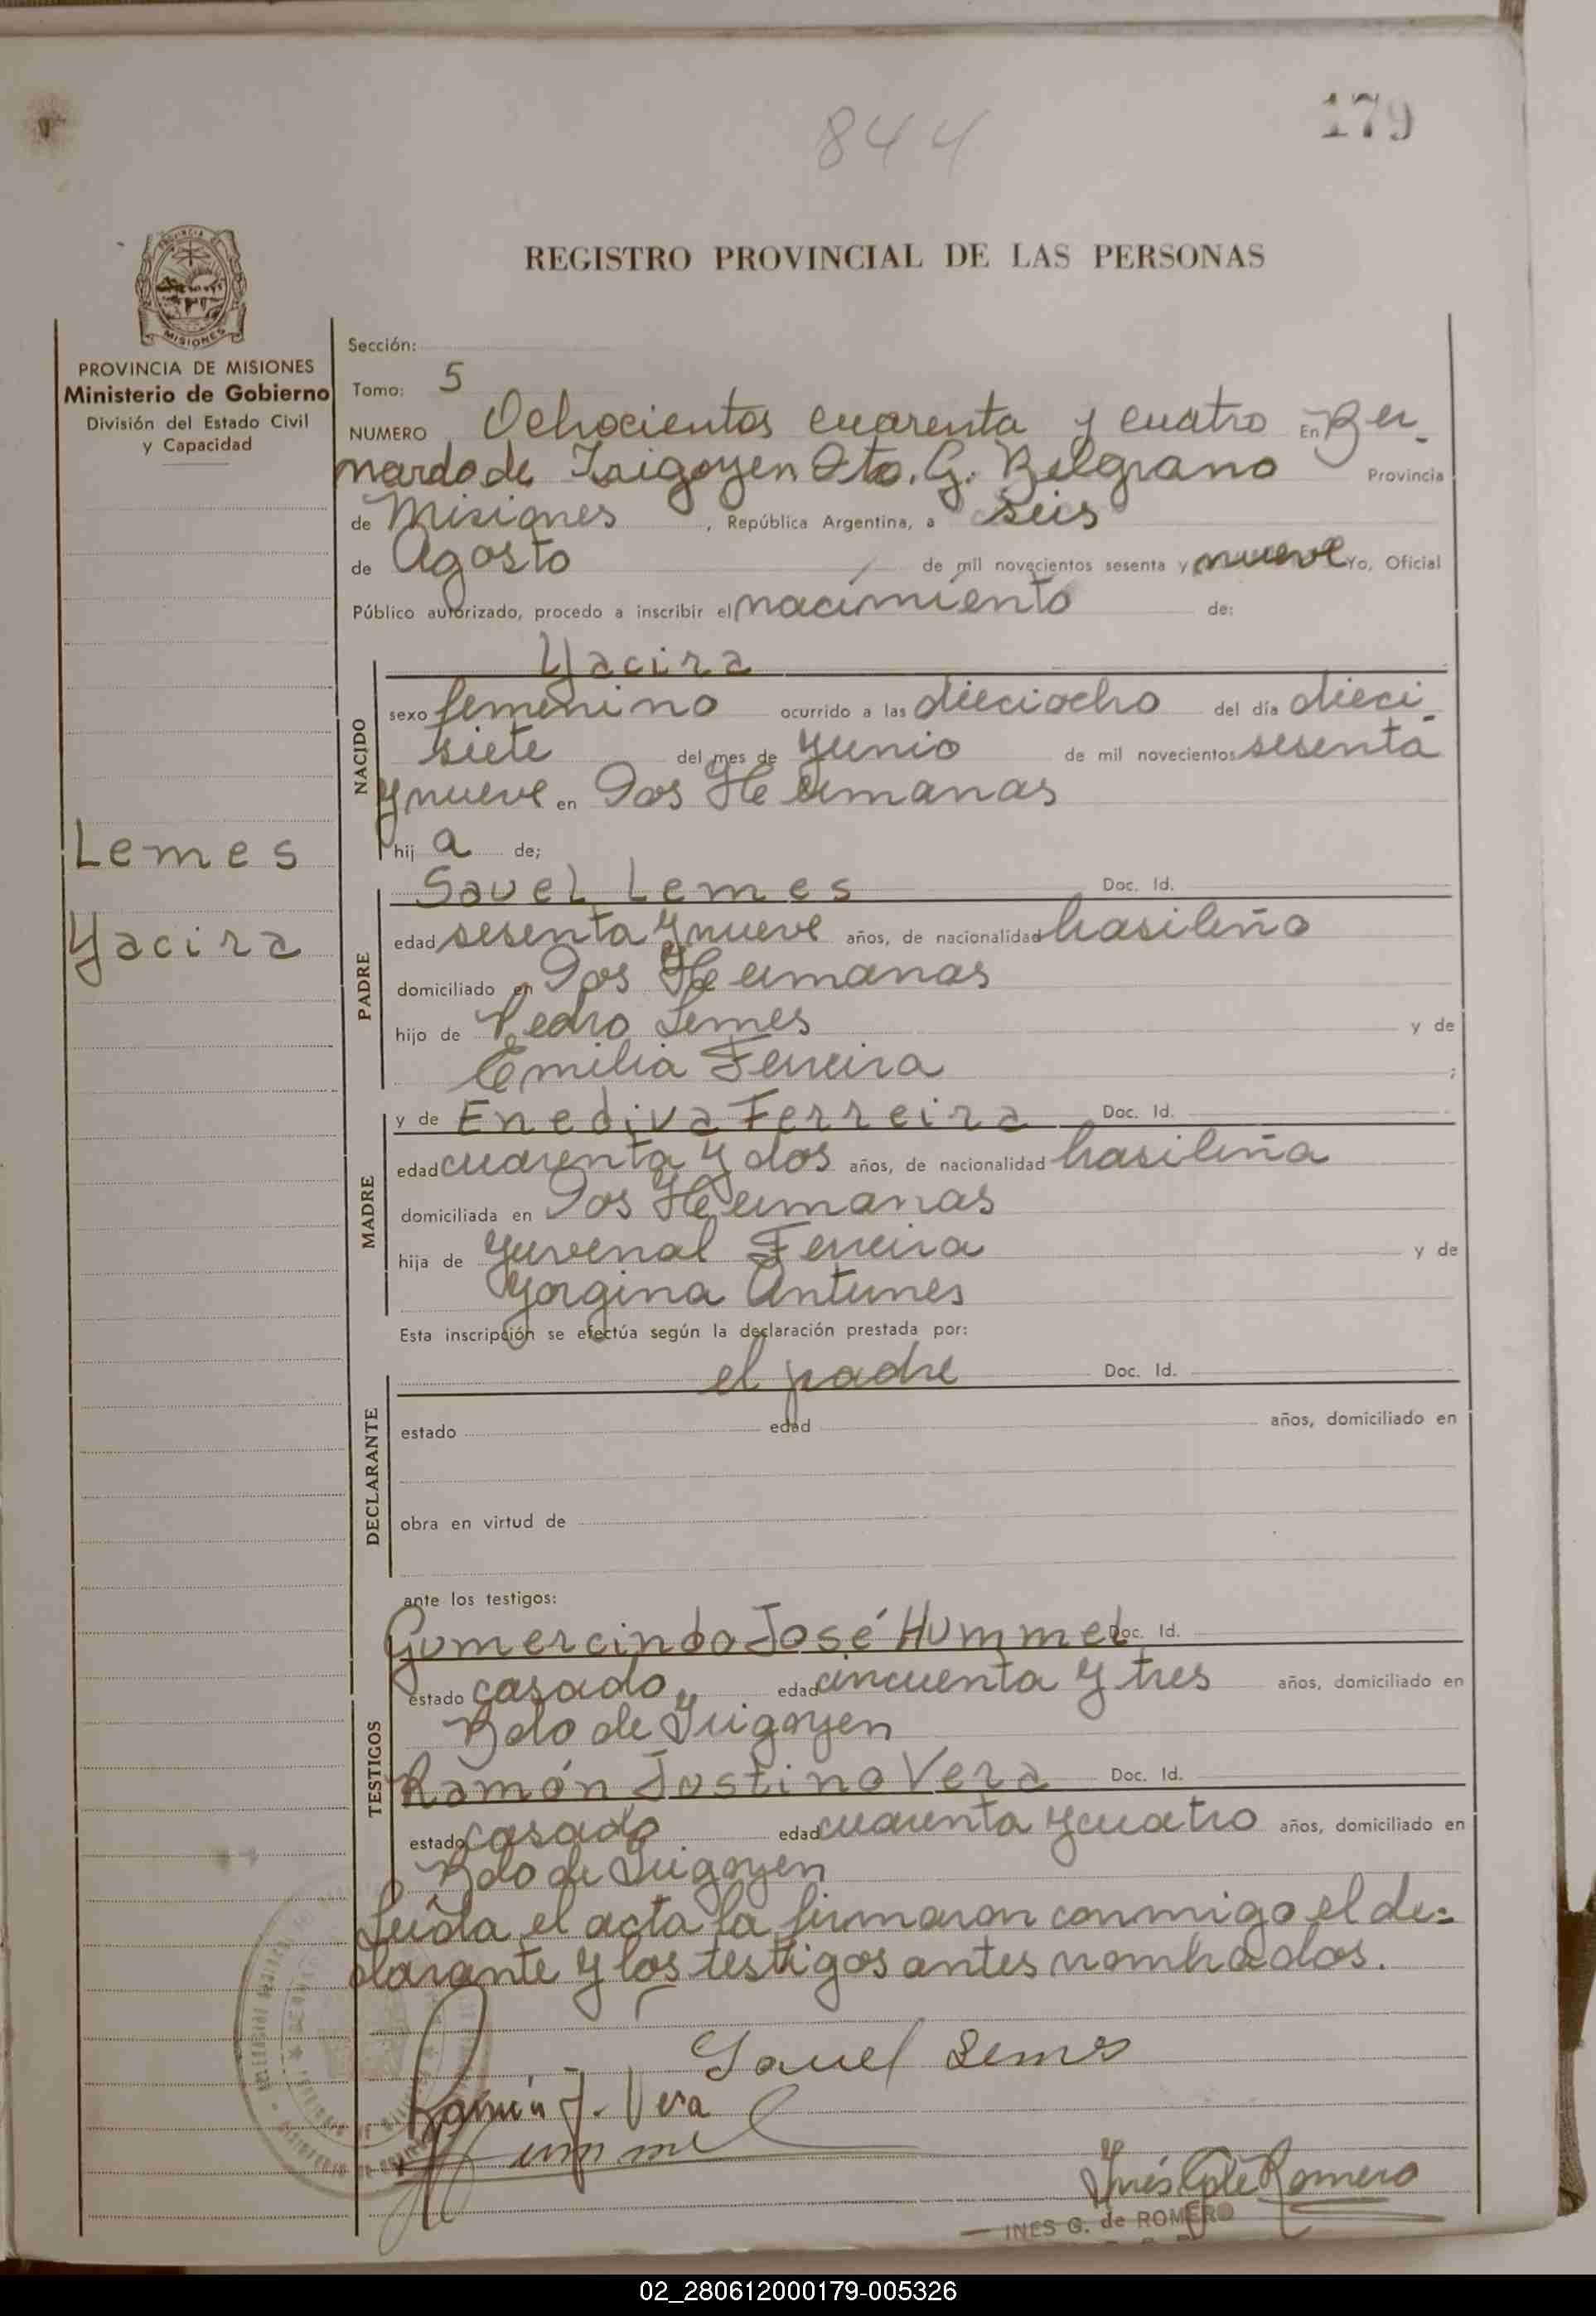 179
844
REGISTRO PROVINCIAL DE LAS PERSONAS
MISIONES
PROVINCIA DE MISIONES
Ministerio de Gobierno
División del Estado Civil
y Capacidad
Sección:
Tomo: 5
NUMERO Ochocientos cuarenta y cuatro En Ber-
nardo de Irigoyen Dto. G. Belgrano Provincia
de Misiones, República Argentina, a seis
de Agosto de mil novecientos sesenta y nueve Yo, Oficial
Público autorizado, procedo a inscribir el nacimiento de:
NACIDO
Yacira
sexo femenino ocurrido a las dieciocho del día dieci-
siete del mes de Yunio de mil novecientos sesenta
y nueve en Dos Hermanas
hij a de;
Lemes
Yacira
PADRE
Sauel Lemes Doc. Id.
edad sesenta y nueve años, de nacionalidad brasileño
domiciliado en Dos Hermanas
hijo de Pedro Lemes y de
Emilia Ferreira;
MADRE
y de Enediva Ferreira Doc. Id.
edad cuarenta y dos años, de nacionalidad brasileña
domiciliada en Dos Hermanas
hija de Yuvenal Ferreira y de
Yorgina Antunes
Esta inscripción se efectúa según la declaración prestada por:
DECLARANTE
el padre Doc. Id.
estado edad años, domiciliado en
obra en virtud de
ante los testigos:
TESTIGOS
Gumercindo José Hummel Doc. Id.
estado casado edad cincuenta y tres años, domiciliado en
Bdo de Irigoyen
Ramón Justino Vera Doc. Id.
estado casado edad cuarenta y cuatro años, domiciliado en
Bdo de Irigoyen
Leída el acta la firmaron conmigo el de-
clarante y los testigos antes nombrados.
Sauel Lemes
Ramón J. Vera
Hummel
Inés G de Romero
INES G. de ROMERO
02_280612000179-005326